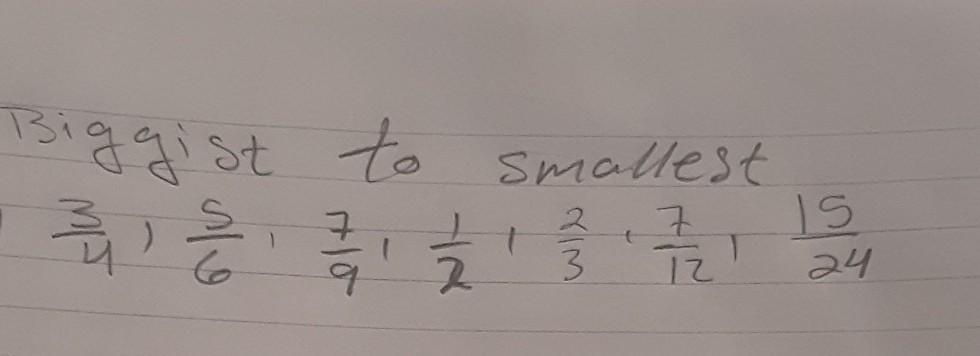 Biggist to smallest
3/4, 5/6, 7/9, 1/2, 2/3, 7/12, 15/24